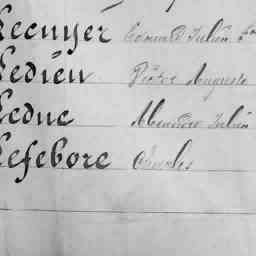 Lecuyer Edouard Julien
Ledieu Victor Auguste
Leduc Alexandre Julien
Lefebore Charles